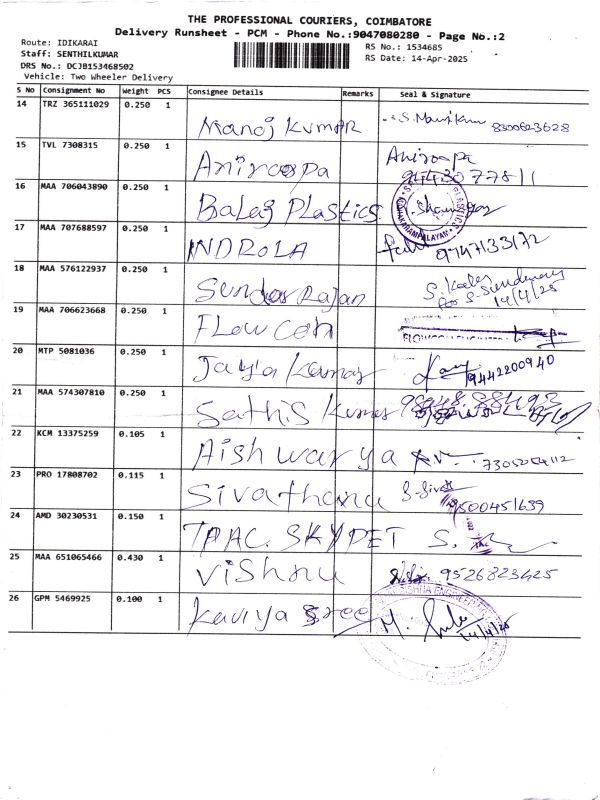 THE PROFESSIONAL COURIERS, COIMBATORE
Delivery Runsheet - PCM - Phone No.:9047080280 - Page No.:2
Route: IDIKARAI
RS No.: 1534685
Staff: SENTHILKUMAR
RS Date: 14-Apr-2025
DRS No.: DCJB153468502
Vehicle: Two Wheeler Delivery
S No Consignment No Weight PCS Consignee Details Remarks Seal & Signature
14 TRZ 365111029 0.250 1 Manoj Kumar 8300623628
15 TVL 7308315 0.250 1 Aniroopa Aniroopa
9443077811
16 MAA 706043890 0.250 1 Balaj Plastics
17 MAA 707688597 0.250 1 INDROLA 9747133172
18 MAA 576122937 0.250 1 Sundar Rajan 14/4/25
19 MAA 706623668 0.250 1 Flowcon
20 MTP 5081036 0.250 1 Jaya Kumar 9442200940
21 MAA 574307810 0.250 1 Sathis Kumar
22 KCM 13375259 0.105 1 Aishwarya
23 PRO 17808702 0.115 1 Sivathanu 9500451639
24 AMD 30230531 0.150 1 TPAC. SKYPET S.
25 MAA 651065466 0.430 1 Vishnu 9526823425
26 GPM 5469925 0.100 1 Kaviya Sree M. 14/4/25